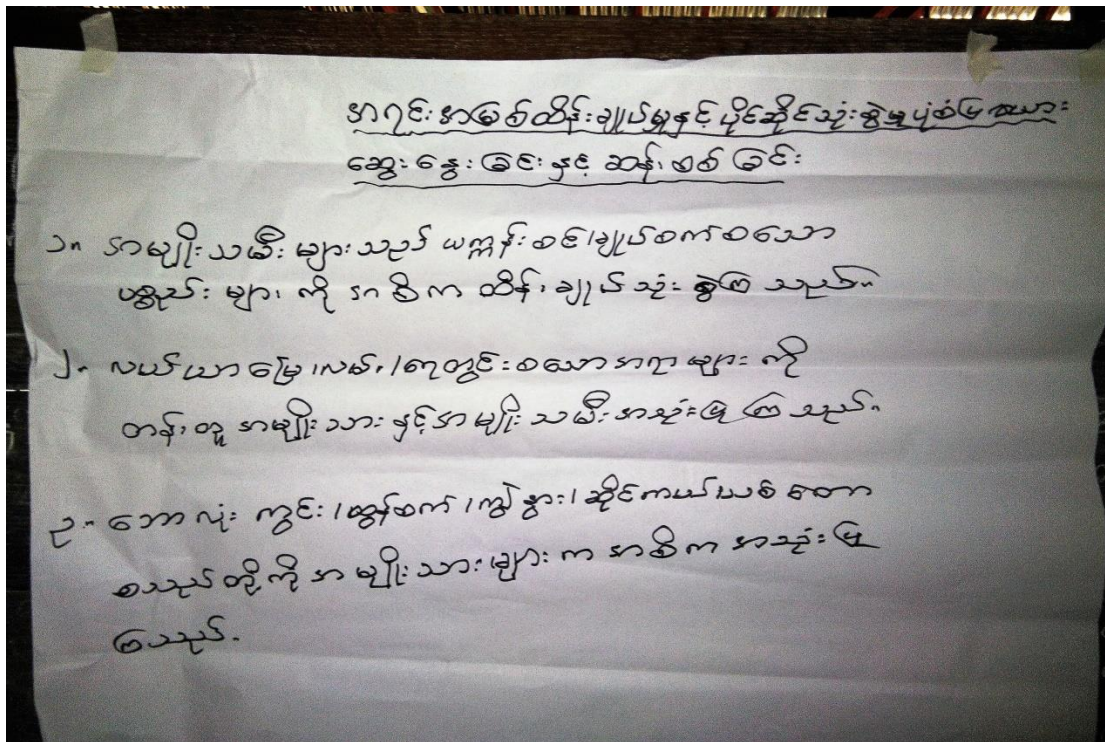 အရင်းအမြစ်ထိန်းချုပ်မှုနှင့် ပိုင်ဆိုင်သုံးစွဲမှုပုံစံပြဇယား
ဆွေးနွေးခြင်းနှင့် ဆန်းစစ်ခြင်း
၁။ အမျိုးသမီးများသည် ယက္ကန်းစင်/ချုပ်စက်စသော
ပစ္စည်းများကို အဓိကထိန်းချုပ်သုံးစွဲကြသည်။
၂။ လယ်ယာမြေ၊လမ်း/ရေတွင်းစသောအရာများကို
တန်းတူအမျိုးသားနှင့်အမျိုးသမီးအသုံးပြုကြသည်။
၃။ ဘောလုံးကွင်း/ထွန်စက်/ကျွဲနွား/ဆိုင်ကယ်ယစ်တော
စသည်တို့ကိုအမျိုးသားများကအဓိကအသုံးပြု
ကြသည်။